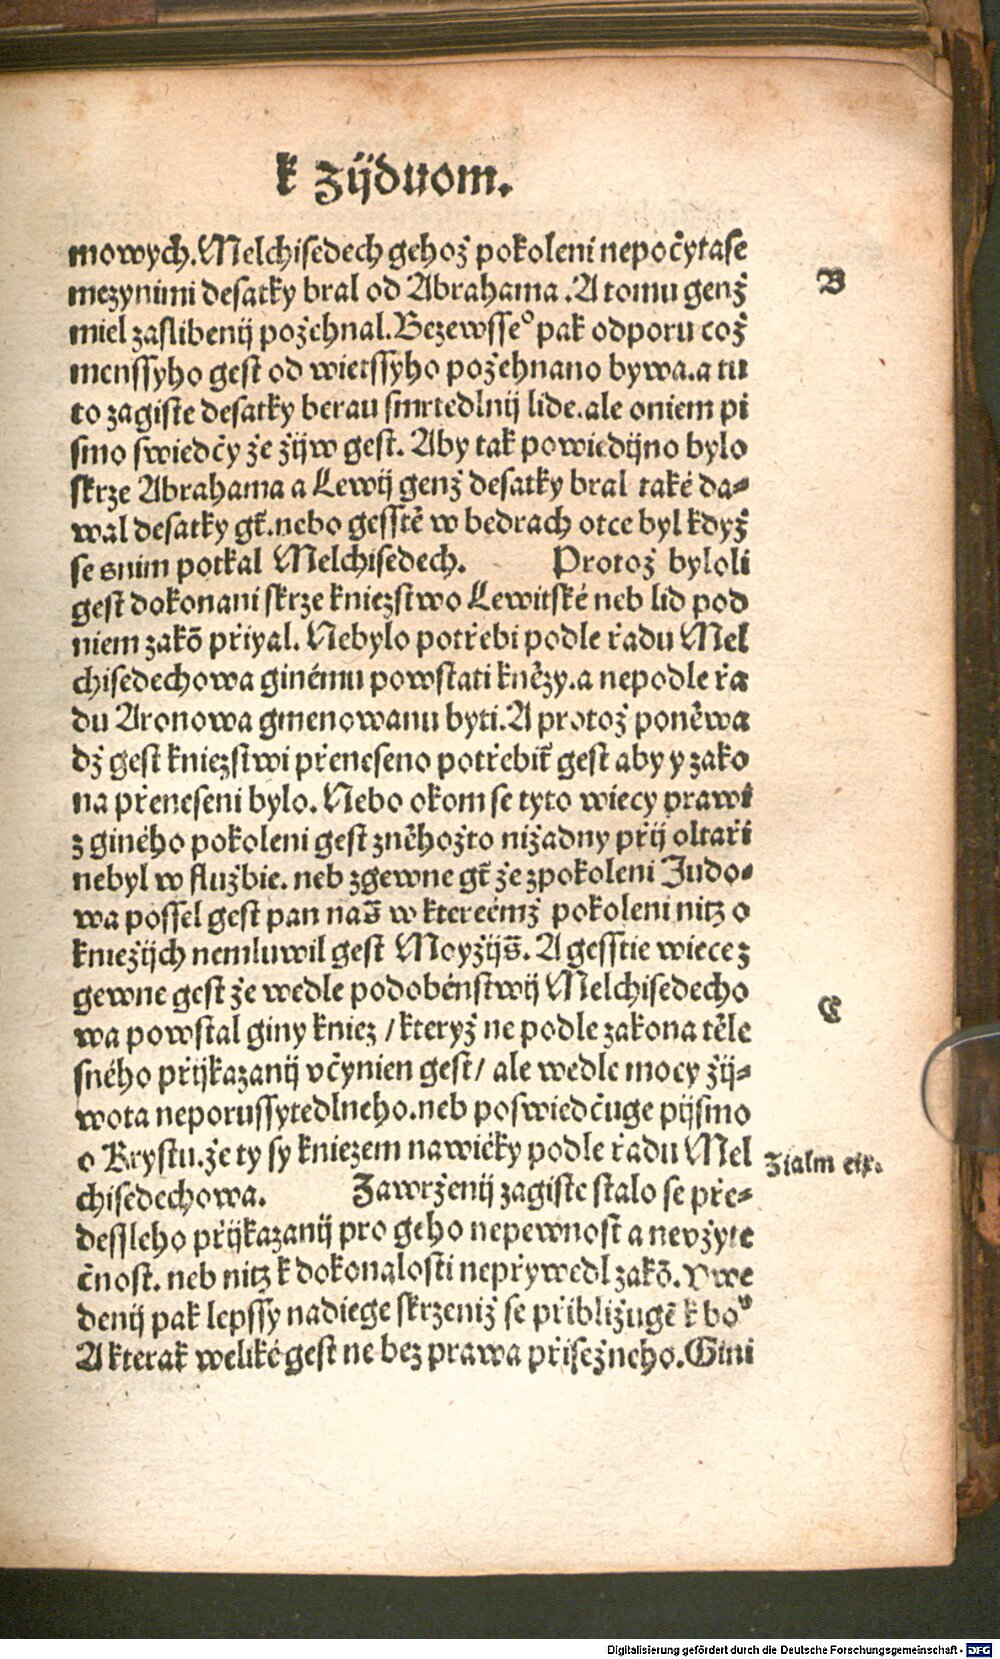 k Zijduom.
mowych. Melchisedech gehož pokoleni nepočytase
B
mezynimi desatky bral od Abrahama. A tomu genž
miel zaslibenij požehnal. Bezewsseº pak odporu což
menssyho gest od wietssyho požehnano bywa. a tu
to zagiste desatky berau smrtedlnij lide. ale oniem pi
smo swiedčy že žijw gest. Aby tak powiedijno bylo
skrze Abrahama a Lewij genž desatky bral také da⸗
wal desatky gt̄. nebo gesstě w bedrach otce byl když
se snim potkal Melchisedech. Protož byloli
gest dokonani skrze kniezstwo Lewitské neb lid pod
niem zakō přiyal. Nebylo potřebi podle řadu Mel
chisedechowa ginému powstati knězy. a nepodle řa
du Aronowa gmenowanu byti. A protož poněwa
dž gest kniezstwi přeneseno potřebit̄ gest aby y zako
na přeneseni bylo. Nebo okom se tyto wiecy prawi
z giného pokoleni gest zněhožto nižadny přij oltaři
nebyl w službie. neb zgewne gt̄ že zpokoleni Judo⸗
wa possel gest pan nas̄ wktereémž pokoleni nitz o
kniežijch nemluwil gest Moyžijs̄. A gesstie wiece z
gewne gest že wedle podobénstwij Melchisedecho
C
wa powstal giny kniez / kteryž ne podle zakona těle
sného přijkazanij včynien gest / ale wedle mocy žij⸗
wota neporussytedlneho. neb poswiedčuge pijsmo
o Krystu. že ty sy kniezem nawiéky podle řadu Mel
Zialm cix.
chisedechowa. Zawrženij zagiste stalo se pře⸗
dessleho přijkazanij pro geho nepewnost a nevžyte
čnost. neb nitz k dokonalosti nepřywedl zakō. Vwe
denij pak lepssy nadiege skrzeniž se přibližugē k boᵛ
A kterak weliké gest ne bez prawa přisežneho. Gini
Digitalisierung gefördert durch die Deutsche Forschungsgemeinschaft - DFG